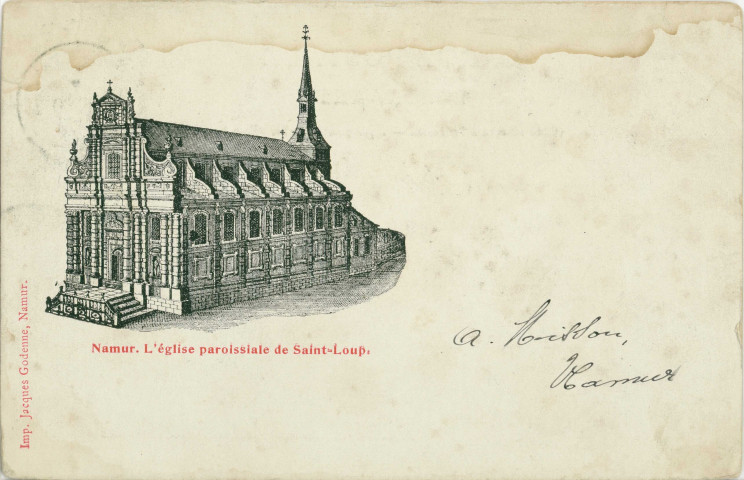 Namur. L'église paroissiale de Saint-Loup.
Imp. Jacques Godenne, Namur.
A.
Namur